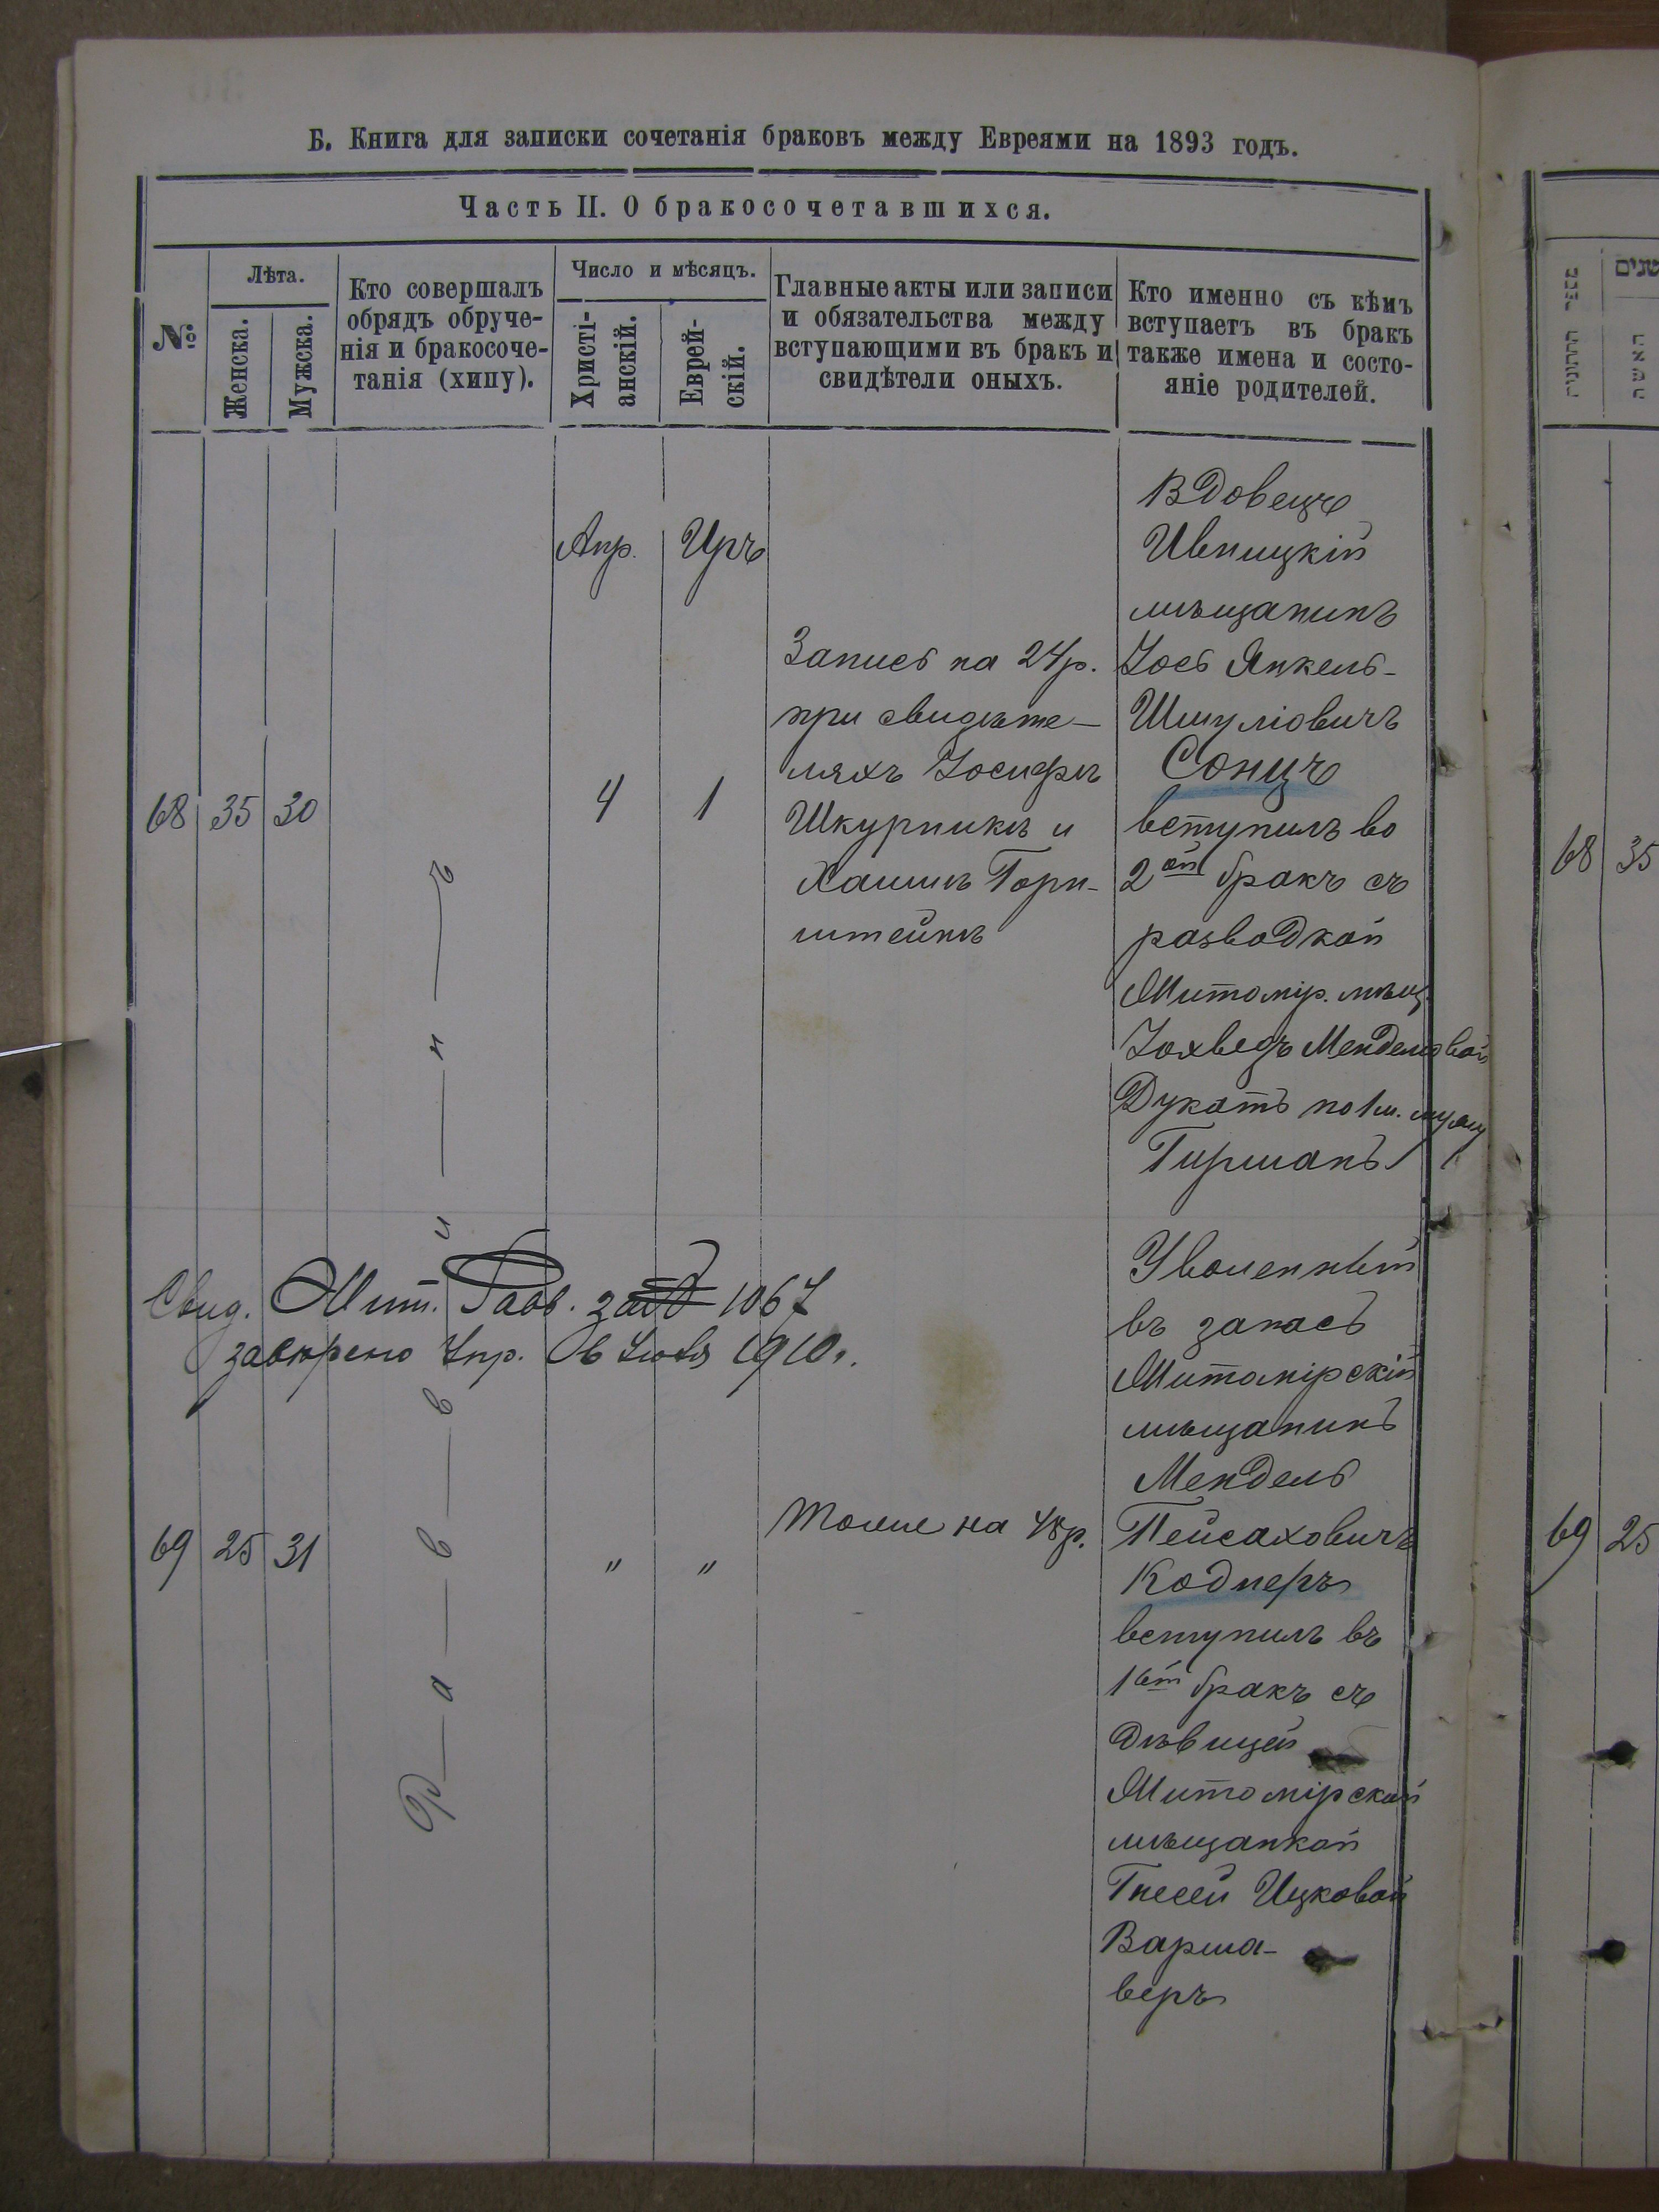 Б. Книга для записки сочетанія браковъ между Евреями на 1893 годъ.
Часть II. О бракосочетавшихся.
№
Лѣта.
Женска.
Мужска.
Кто совершалъ
обрядъ обруче-
нія и бракосоче-
танія (хипу).
Число и мѣсяцъ.
Христі-
анскій.
Еврей-
скій.
Главные акты или записи
и обязательства между
вступающими въ бракъ и
свидѣтели оныхъ.
Кто именно съ кѣмъ
вступаетъ въ бракъ
также имена и состо-
яніе родителей.
Апр.
Иръ
68
35
30
Раввинъ
4
1
Запись на 24 р.
при свидѣте-
ляхъ Іосифѣ
Шкурникѣ и
Хаимѣ Горн-
штейнѣ
Вдовецъ
Ивницкій
мѣщанинъ
Іось Янкель-
Шмуліовичъ
Сонцъ
вступилъ во
2ой бракъ съ
разводкой
Житомір. мѣщ.
Іохведъ Менделіовой
Дукатъ по 1м. мужу
Гирманъ
Свид. Жит. Равв. за № 1067
завѣрено Упр. 6 Іюля 1910 г.
69
25
31
"
"
Тоже на 48 р.
Уволенный
въ запасъ
Житомірскій
мѣщанинъ
Мендель
Пейсаховичъ
Коднеръ
вступилъ въ
1ый бракъ съ
дѣвицей
Житомірской
мѣщанкой
Гнесей Ицковой
Варша-
веръ
שנים
האשה
68
35
69
25